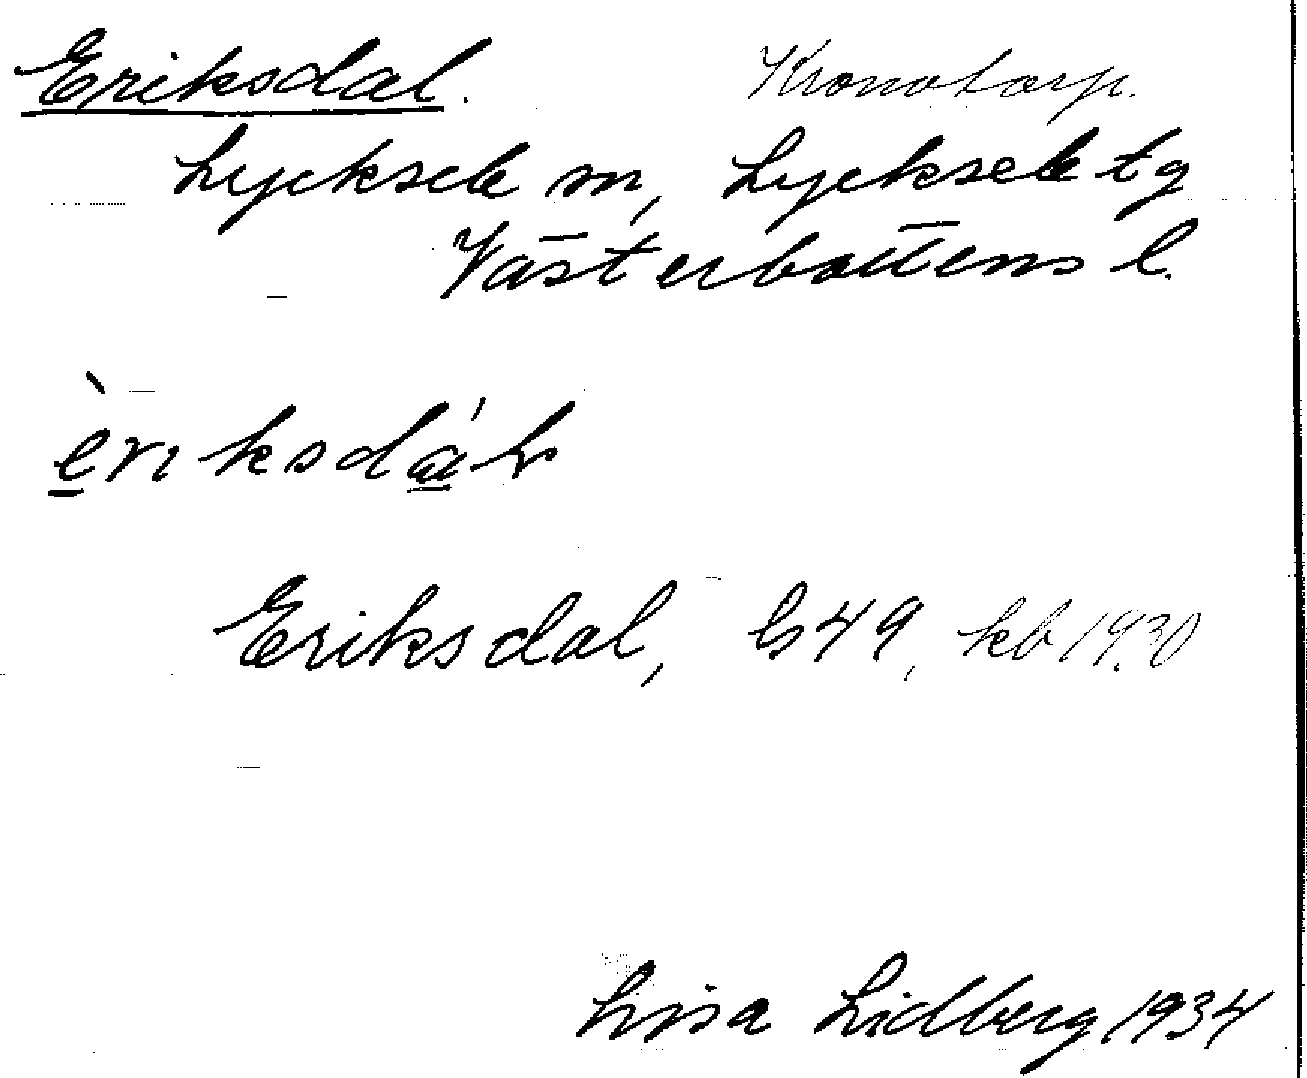 Eriksdal. Kronotorp.
Lycksele sn, Lycksele tg
Västerbottens l.
èriksdáɫ
Eriksdal, G49, kb 1930
Lisa Lidberg 1934